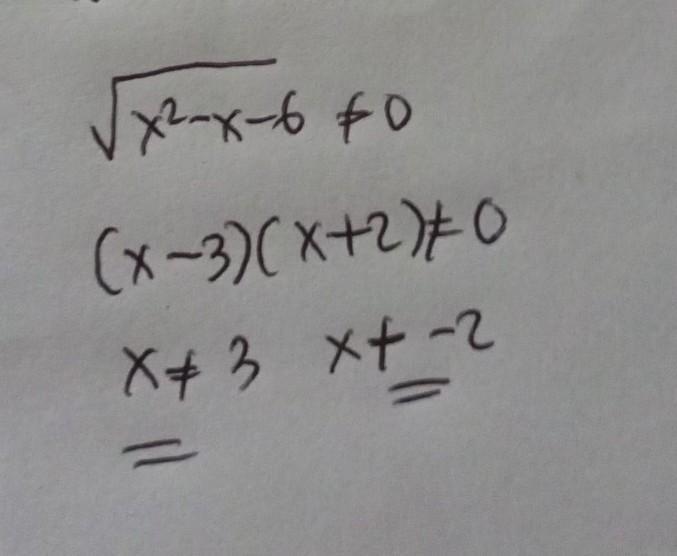 √(x²-x-6) ≠ 0
(x-3)(x+2) ≠ 0
x ≠ 3 x ≠ -2